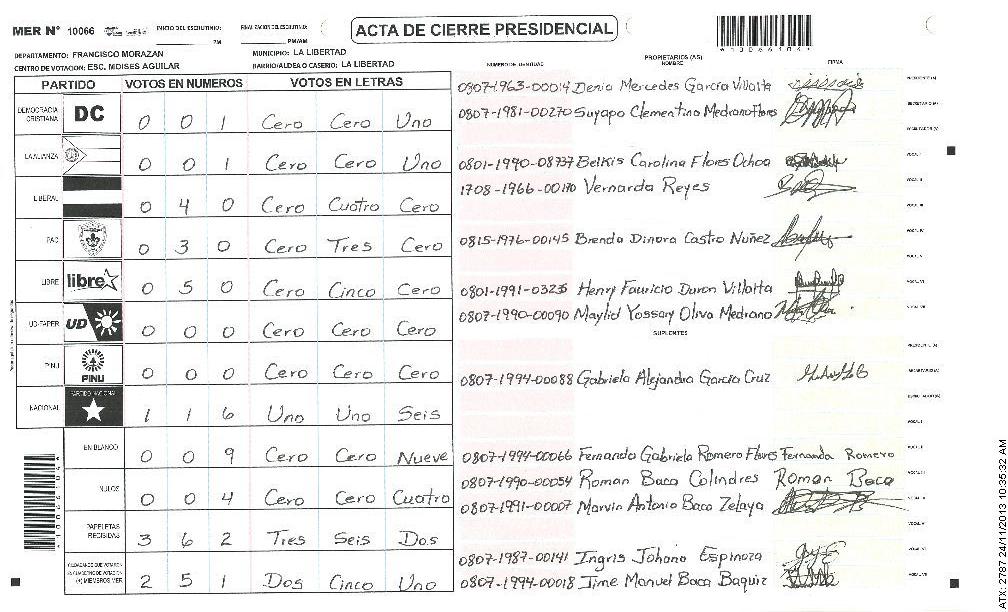 MER Nº 10066 INICIO DEL ESCRUTINIO: FINALIZACION DEL ESCRUTINIO: ACTA DE CIERRE PRESIDENCIAL
PM PM/AM
DEPARTAMENTO: FRANCISCO MORAZAN MUNICIPIO: LA LIBERTAD
CENTRO DE VOTACION: ESC. MOISES AGUILAR BARRIO/ALDEA O CASERIO: LA LIBERTAD
NUMERO DE IDENTIDAD PROPIETARIOS (AS) NOMBRE FIRMA
PARTIDO VOTOS EN NUMEROS VOTOS EN LETRAS
DEMOCRACIA CRISTIANA DC 0 0 1 Cero Cero Uno
LA ALIANZA 0 0 1 Cero Cero Uno
LIBERAL 0 4 0 Cero Cuatro Cero
PAC 0 3 0 Cero Tres Cero
LIBRE libre 0 5 0 Cero Cinco Cero
UD-FAPER UD 0 0 0 Cero Cero Cero
PINU PINU 0 0 0 Cero Cero Cero
NACIONAL PARTIDO NACIONAL 1 1 6 Uno Uno Seis
EN BLANCO 0 0 9 Cero Cero Nueve
NULOS 0 0 4 Cero Cero Cuatro
PAPELETAS RECIBIDAS 3 6 2 Tres Seis Dos
CIUDADANOS QUE VOTARON EN CUADERNO DE VOTACION (+) MIEMBROS MER 2 5 1 Dos Cinco Uno
0807-1963-00014 Denia Mercedes García Villatta
0807-1981-00270 Suyapa Clementina Medrano Flores
0801-1990-08737 Belkis Carolina Flores Ochoa
1708-1966-00170 Vernarda Reyes
0815-1976-00145 Brenda Dinora Castro Nuñez
Henry Fauricio Duron Villatta
0807-1990-00090 Maylid Yossary Oliva Medrano
SUPLENTES
0807-1994-00088 Gabriela Alejandra García Cruz
0807-1994-00066 Fernanda Gabriela Romero Flores Fernanda Romero
0807-1990-00054 Roman Baca Colindres Roman Baca
0807-1991-00007 Marvin Antonio Baca Zelaya
0807-1987-00141 Ingris Johana Espinoza
0807-1994-00018 Jime Manuel Baca Baquiz
ATX-2787 24/11/2013 10:35:32 AM